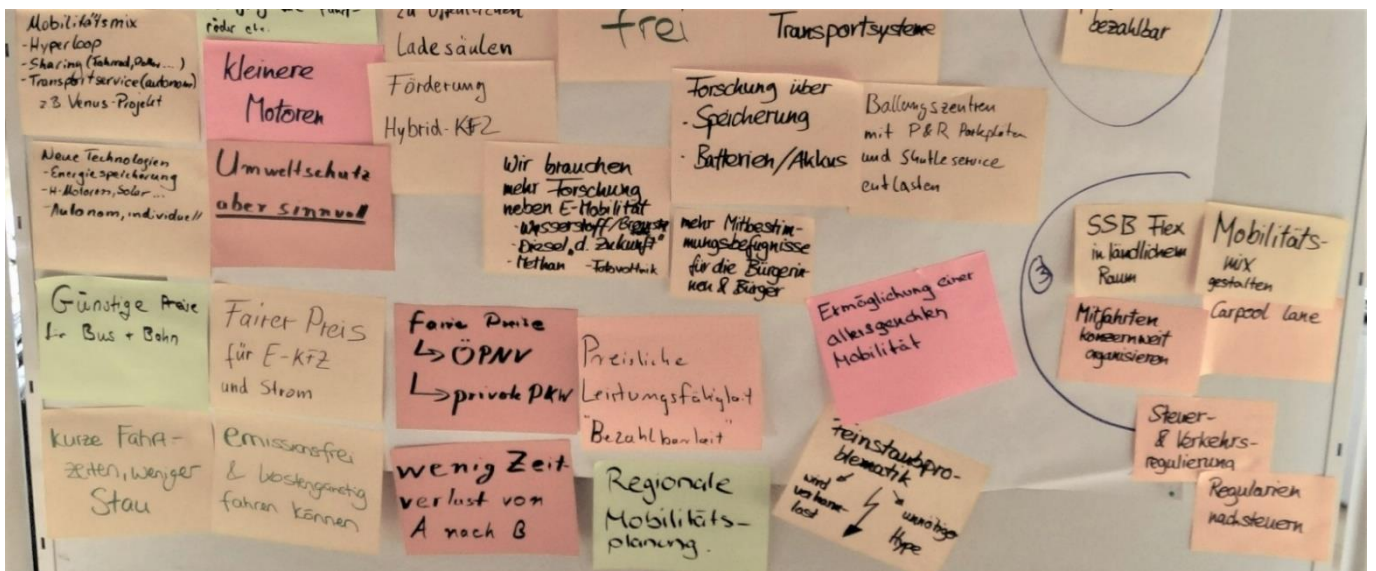 Mobilitätsmix
- Hyperloop
- Sharing (Fahrrad, Roller...)
- Transportservice (autonom)
z B Venus-Projekt
räder etc.
kleinere
Motoren
zu öffentlichen
Ladesäulen
Förderung
Hybrid-KFZ
frei
Transportsysteme
bezahlbar
Forschung über
- Speicherung
- Batterien/Akkus
Ballungszentren
mit P&R Parkplätzen
und Shuttleservice
entlasten
Neue Technologien
- Energiespeicherung
- H-Motoren, Solar...
- Autonom, individuell
Umweltschutz
aber sinnvoll
Wir brauchen
mehr Forschung
neben E-Mobilität
- Wasserstoff/
- Diesel „d. Zukunft"
- Methan
mehr Mitbestim-
mungsbefugnisse
für die Bürgerin-
nen & Bürger
SSB Flex
in ländlichem
Raum
Mobilitäts-
mix
gestalten
3
Mitfahrten
konzernweit
organisieren
Carpool lane
Günstige Preise
Bus + Bahn
Fairer Preis
für E-KFZ
und Strom
Faire Preise
↳ ÖPNV
↳ private PKW
Preisliche
Leistungsfähigkeit
"Bezahlbarkeit"
Ermöglichung einer
altersgerechten
Mobilität
kurze Fahrt-
zeiten, weniger
Stau
emissionsfrei
& kostengünstig
fahren können
wenig Zeit-
verlust von
A nach B
Regionale
Mobilitäts-
planung.
Feinstaubpro-
blematik
wird
verharm-
lost
unnötiger
Hype
Steuer-
& Verkehrs-
regulierung
Regularien
nachsteuern